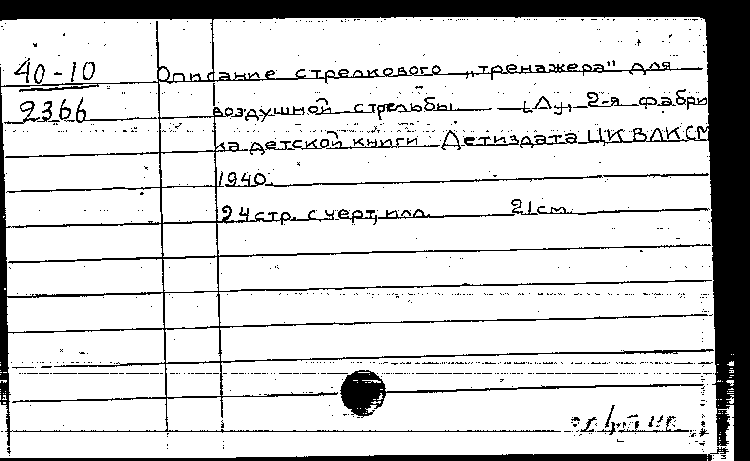 40-10 Описание стрелкового „тренажера" для
2366 воздушной стрельбы [Л], 2-я фабри
ка детской книги Детиздата ЦК ВЛКСМ
1940.
24 стр. с черт., илл. 21 см.